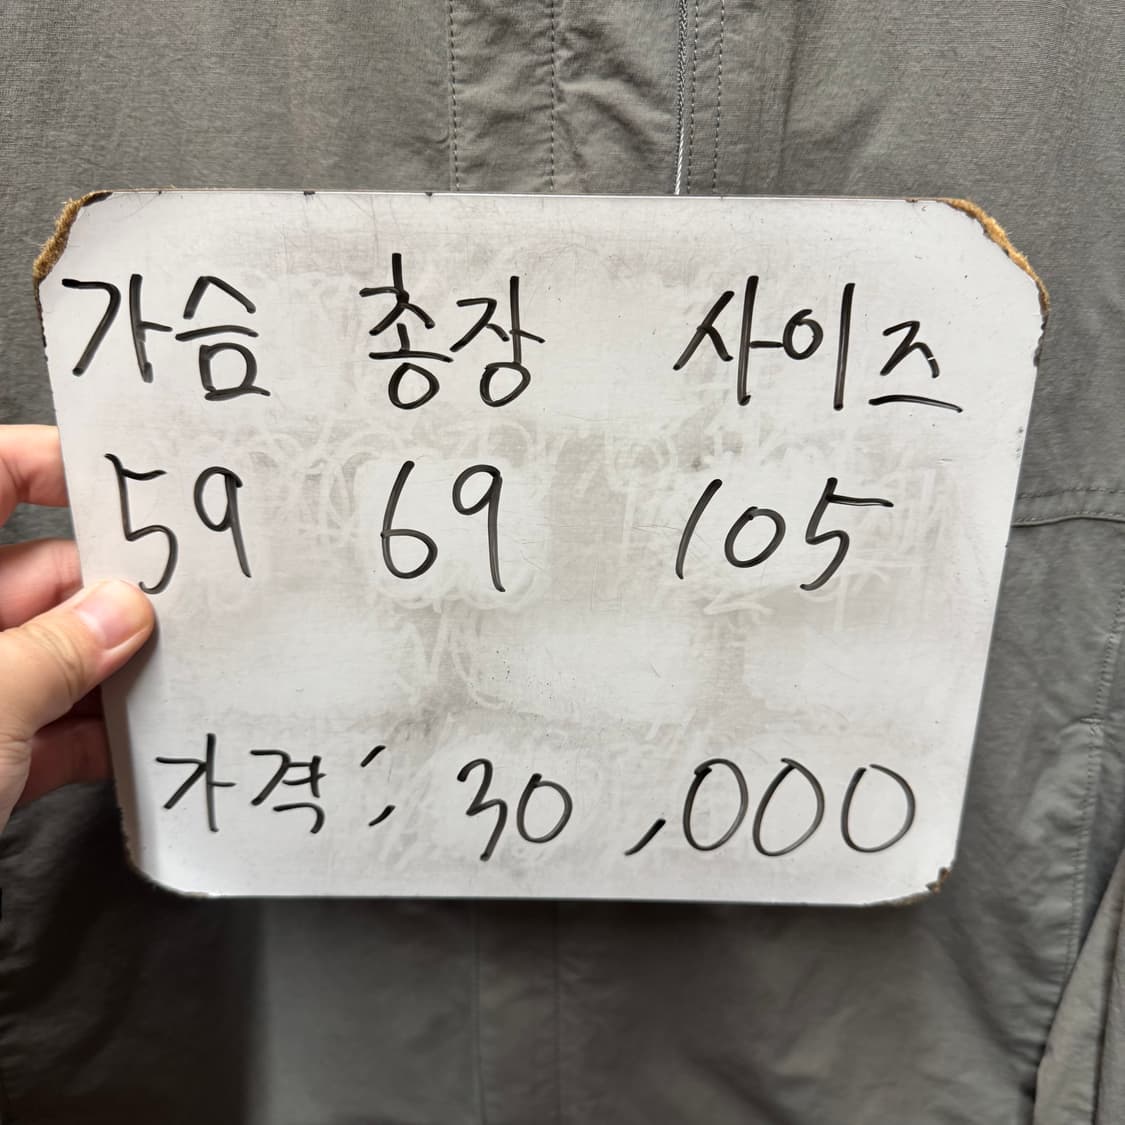 가슴 총장 사이즈
59 69 105
가격: 30,000